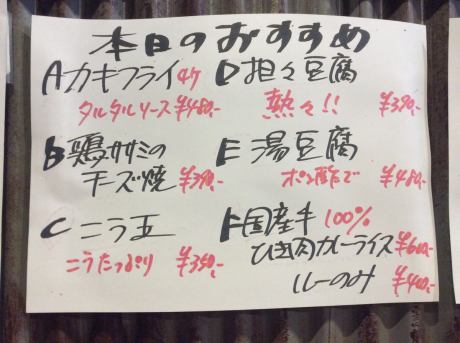 本日のおすすめ
A カキフライ 4ケ
タルタルソース ¥480.-
B 鶏ササミの
チーズ焼 ¥390.-
C ニラ玉
ニラたっぷり ¥350.-
D 担々豆腐
熱々!! ¥390.-
E 湯豆腐
ポン酢で ¥480.-
F 国産牛 100%
ひき肉カレーライス ¥600.-
ルーのみ ¥400.-